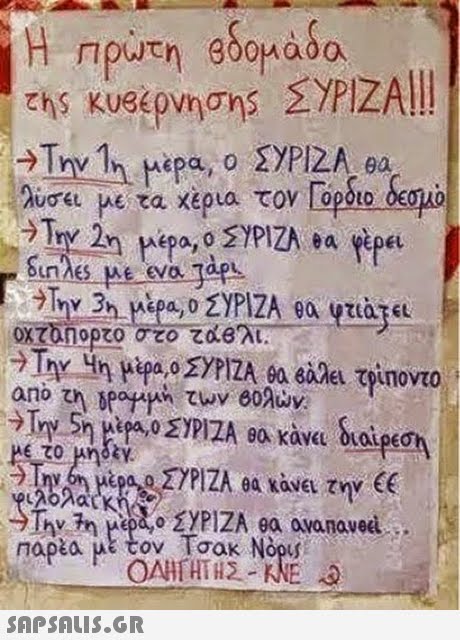 Η πρώτη βδομάδα
της κυβέρνησης ΣΥΡΙΖΑ!!!
→Την 1η μέρα, ο ΣΥΡΙΖΑ θα
λύσει με τα χέρια τον Γόρδιο δεσμό
→Την 2η μέρα, ο ΣΥΡΙΖΑ θα φέρει
διπλές με ένα ζάρι
→Την 3η μέρα, ο ΣΥΡΙΖΑ θα φτιάξει
οχτάπορτο στο τάβλι.
→Την 4η μέρα, ο ΣΥΡΙΖΑ θα βάλει τρίποντο
από τη γραμμή των βολών.
→Την 5η μέρα, ο ΣΥΡΙΖΑ θα κάνει διαίρεση
με το μηδέν.
→Την 6η μέρα, ο ΣΥΡΙΖΑ θα κάνει την ΕΕ
φιλολαϊκή
→Την 7η μέρα, ο ΣΥΡΙΖΑ θα αναπαυθεί...
παρέα με τον Τσακ Νόρις
ΟΔΗΓΗΤΗΣ - ΚΝΕ
SAPSALIS.GR